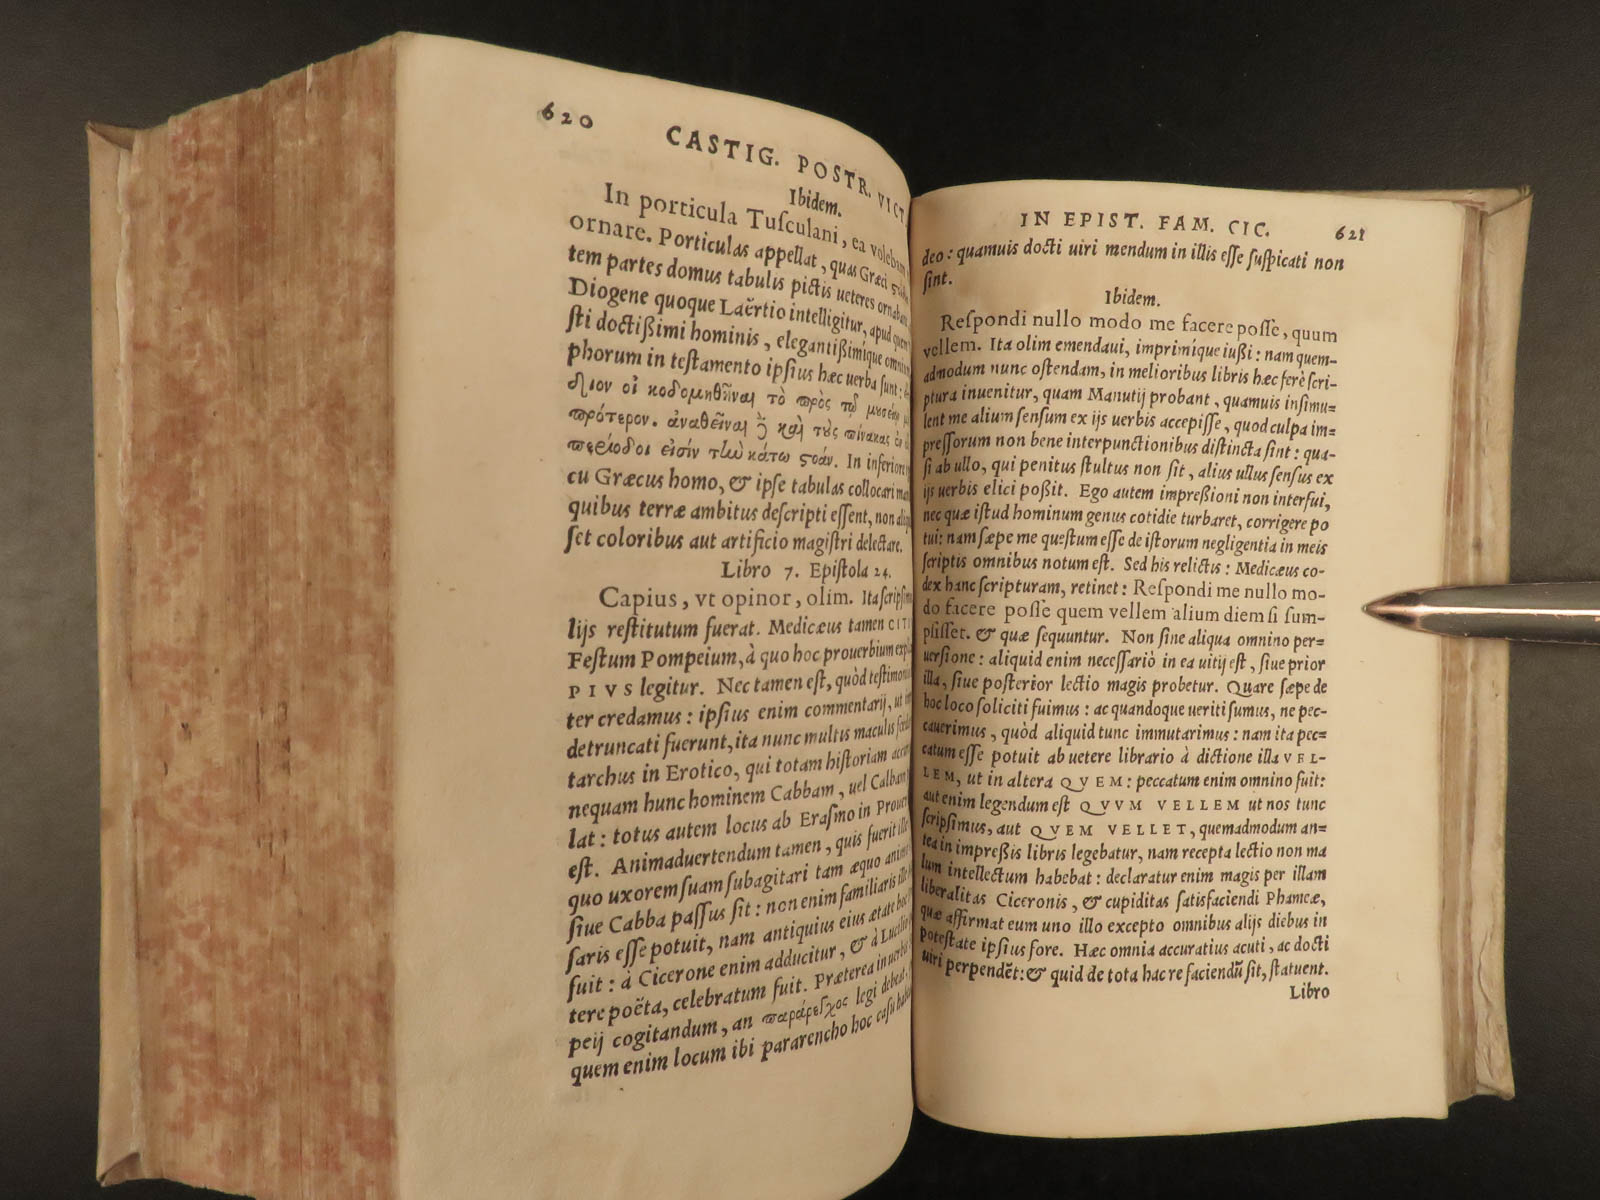 620
CASTIG. POSTR. VICT.
Ibidem.
In porticula Tuſculani, ea volebam
ornare. Porticulas appellat, quas Græci
tem partes domus tabulis pictis ueteres ornabant,
Diogene quoque Laërtio intelligitur, apud quem
ſti doctißimi hominis, elegantißimique omnium
phorum in teſtamento ipſius hæc uerba ſunt:
πρότερον. ἀναθεῖναι ϳ̃ καὶ τοὺς πίνακας ἐν
περίοδοι εἰσίν τὴν κάτω ϛοάν. In inferiore
cu Græcus homo, & ipſe tabulas collocari
quibus terræ ambitus deſcripti eſſent, non
ſet coloribus aut artificio magiſtri delectare.
Libro 7. Epiſtola 24.
Capius, vt opinor, olim. Ita ſcripſi
lijs reſtitutum fuerat. Medicæus tamen CITI
Feſtum Pompeium, à quo hoc prouerbium
PIVS legitur. Nec tamen eſt, quòd teſtimonio
ter credamus: ipſius enim commentarij, ut
detruncati fuerunt, ita nunc multis maculis
tarchus in Erotico, qui totam hiſtoriam
nequam hunc hominem Cabbam, uel Calbam
lat: totus autem locus ab Eraſmo in
eſt. Animaduertendum tamen, quis fuerit ille
quo uxorem ſuam ſubagitari tam æquo animo
ſiue Cabba paſſus ſit: non enim familiaris ille
ſaris eſſe potuit, nam antiquius eius ætate hoc
fuit: à Cicerone enim adducitur, & à Lucilio
tere poëta, celebratum fuit. Præterea in uerbis
peij cogitandum, an legi debeat,
quem enim locum ibi pararencho hoc caſu
IN EPIST. FAM. CIC. 621
deo: quamuis docti uiri mendum in illis eſſe ſuſpicati non
ſint.
Ibidem.
Reſpondi nullo modo me facere poſſe, quum
vellem. Ita olim emendaui, imprimíque iußi: nam quem-
admodum nunc oſtendam, in melioribus libris hæc ferè ſcri-
ptura inuenitur, quam Manutij probant, quamuis inſimu-
lent me alium ſenſum ex ijs uerbis accepiſſe, quod culpa im-
preſſorum non bene interpunctionibus diſtincta ſint: qua-
ſi ab ullo, qui penitus ſtultus non ſit, alius ullus ſenſus ex
ijs uerbis elici poßit. Ego autem impreßioni non interfui,
nec quæ iſtud hominum genus cotidie turbaret, corrigere po
tui: nam ſæpe me queſtum eſſe de iſtorum negligentia in meis
ſcriptis omnibus notum eſt. Sed his relictis: Medicæus co-
dex hanc ſcripturam, retinet: Reſpondi me nullo mo-
do facere poſſe quem vellem alium diem ſi ſum-
pſiſſet. & quæ ſequuntur. Non ſine aliqua omnino per-
uerſione: aliquid enim neceſſariò in ea uitij eſt, ſiue prior
illa, ſiue poſterior lectio magis probetur. Quare ſæpe de
hoc loco ſoliciti fuimus: ac quandoque ueriti ſumus, ne pec-
cauerimus, quòd aliquid tunc immutarimus: nam ita pec-
catum eſſe potuit ab uetere librario à dictione illa VEL-
LEM, ut in altera QVEM: peccatum enim omnino fuit:
aut enim legendum eſt QVVM VELLEM ut nos tunc
ſcripſimus, aut QVEM VELLET, quemadmodum an-
tea in impreßis libris legebatur, nam recepta lectio non ma
lum intellectum habebat: declaratur enim magis per illam
liberalitas Ciceronis, & cupiditas ſatisfaciendi Phameæ,
quæ affirmat eum uno illo excepto omnibus alijs diebus in
poteſtate ipſius fore. Hæc omnia accuratius acuti, ac docti
uiri perpendẽt: & quid de tota hac re faciendũ ſit, ſtatuent.
Libro